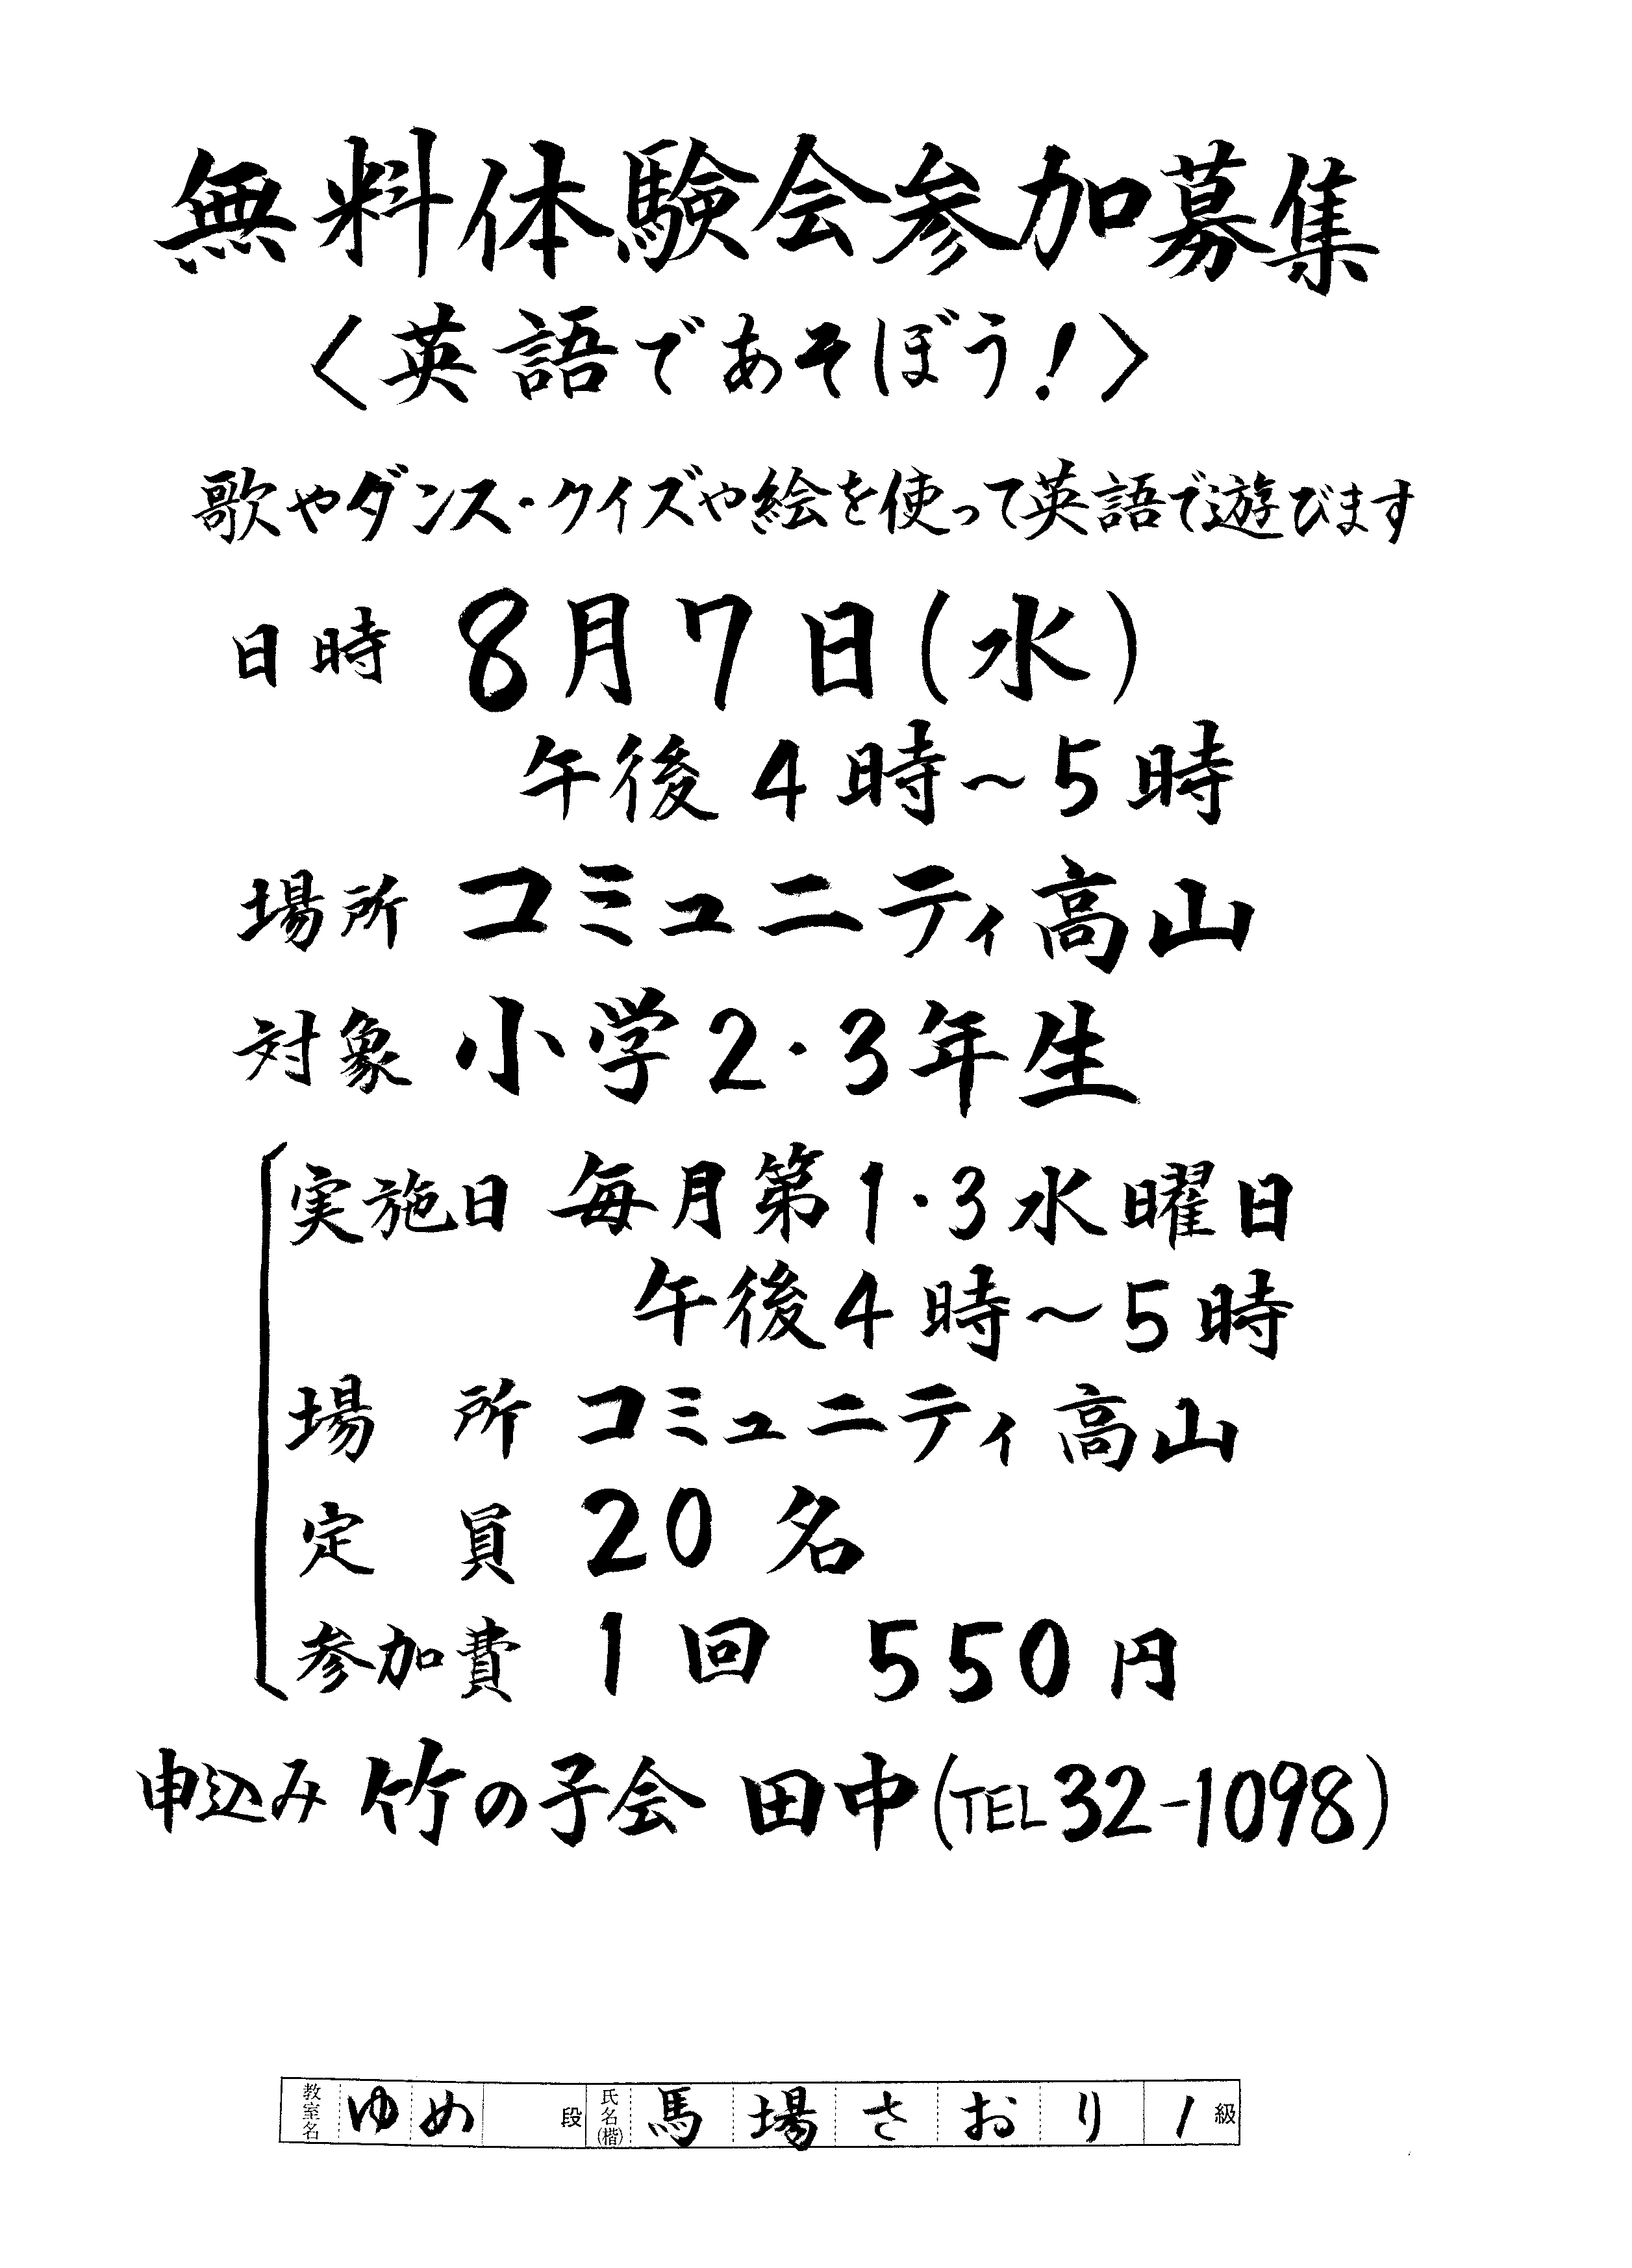 無料体験会参加募集
〈英語であそぼう!〉
歌やダンス・クイズや絵を使って英語で遊びます
日時 8月7日(水)
午後4時~5時
場所 コミュニティ高山
対象 小学2・3年生
実施日 毎月第1・3水曜日
午後4時~5時
場所 コミュニティ高山
定員 20名
参加費 1回 550円
申込み 竹の子会 田中(TEL32-1098)
教室名 ゆめ 段 氏名(楷) 馬場さおり 1級